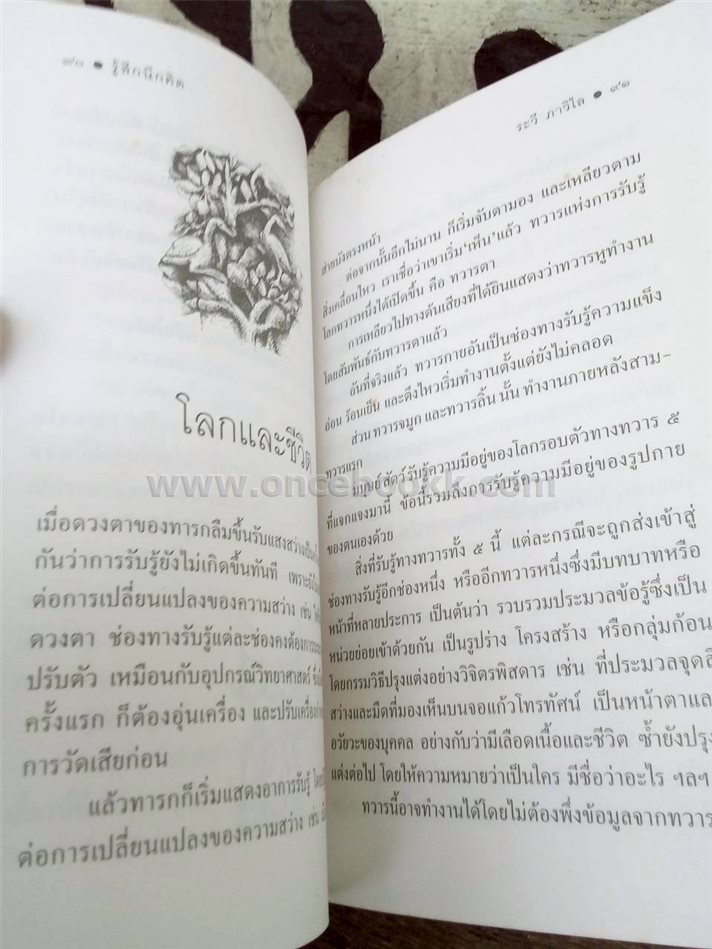 ๙๐ • รู้สึกนึกคิด
โลกและชีวิต
เมื่อดวงตาของทารกลืมขึ้นรับแสงสว่าง
กันว่าการรับรู้ยังไม่เกิดขึ้นทันที เพราะ
ต่อการเปลี่ยนแปลงของความสว่าง เช่น
ดวงตา ช่องทางรับรู้แต่ละช่องคงต้องการ
ปรับตัว เหมือนกับอุปกรณ์วิทยาศาสตร์
ครั้งแรก ก็ต้องอุ่นเครื่อง และปรับเครื่อง
การวัดเสียก่อน
แล้วทารกก็เริ่มแสดงอาการรับรู้
ต่อการเปลี่ยนแปลงของความสว่าง เช่น
ระวี ภาวิไล • ๙๑
ส่ายบังตรงหน้า
ต่อจากนั้นอีกไม่นาน ก็เริ่มจับตามอง และเหลียวตาม
สิ่งเคลื่อนไหว เราเชื่อว่าเขาเริ่ม‘เห็น’แล้ว ทวารแห่งการรับรู้
โลกทวารหนึ่งได้เปิดขึ้น คือ ทวารตา
การเหลียวไปทางต้นเสียงที่ได้ยินแสดงว่าทวารหูทำงาน
โดยสัมพันธ์กับทวารตาแล้ว
อันที่จริงแล้ว ทวารกายอันเป็นช่องทางรับรู้ความแข็ง
อ่อน ร้อนเย็น และตึงไหวเริ่มทำงานตั้งแต่ยังไม่คลอด
ส่วน ทวารจมูก และทวารลิ้น นั้น ทำงานภายหลังสาม-
ทวารแรก
มนุษย์สัตว์รับรู้ความมีอยู่ของโลกรอบตัวทางทวาร ๕
ที่แจกแจงมานี้ ข้อนี้รวมถึงการรับรู้ความมีอยู่ของรูปกาย
ของตนเองด้วย
สิ่งที่รับรู้ทางทวารทั้ง ๕ นี้ แต่ละกรณีจะถูกส่งเข้าสู่
ช่องทางรับรู้อีกช่องหนึ่ง หรืออีกทวารหนึ่งซึ่งมีบทบาทหรือ
หน้าที่หลายประการ เป็นต้นว่า รวบรวมประมวลข้อรู้ซึ่งเป็น
หน่วยย่อยเข้าด้วยกัน เป็นรูปร่าง โครงสร้าง หรือกลุ่มก้อน
โดยกรรมวิธีปรุงแต่งอย่างวิจิตรพิสดาร เช่น ที่ประมวลจุด
สว่างและมืดที่มองเห็นบนจอแก้วโทรทัศน์ เป็นหน้าตาและ
อวัยวะของบุคคล อย่างกับว่ามีเลือดเนื้อและชีวิต ซ้ำยังปรุง
แต่งต่อไป โดยให้ความหมายว่าเป็นใคร มีชื่อว่าอะไร ฯลฯ
ทวารนี้อาจทำงานได้โดยไม่ต้องพึ่งข้อมูลจากทวาร
www.oncebookk.com